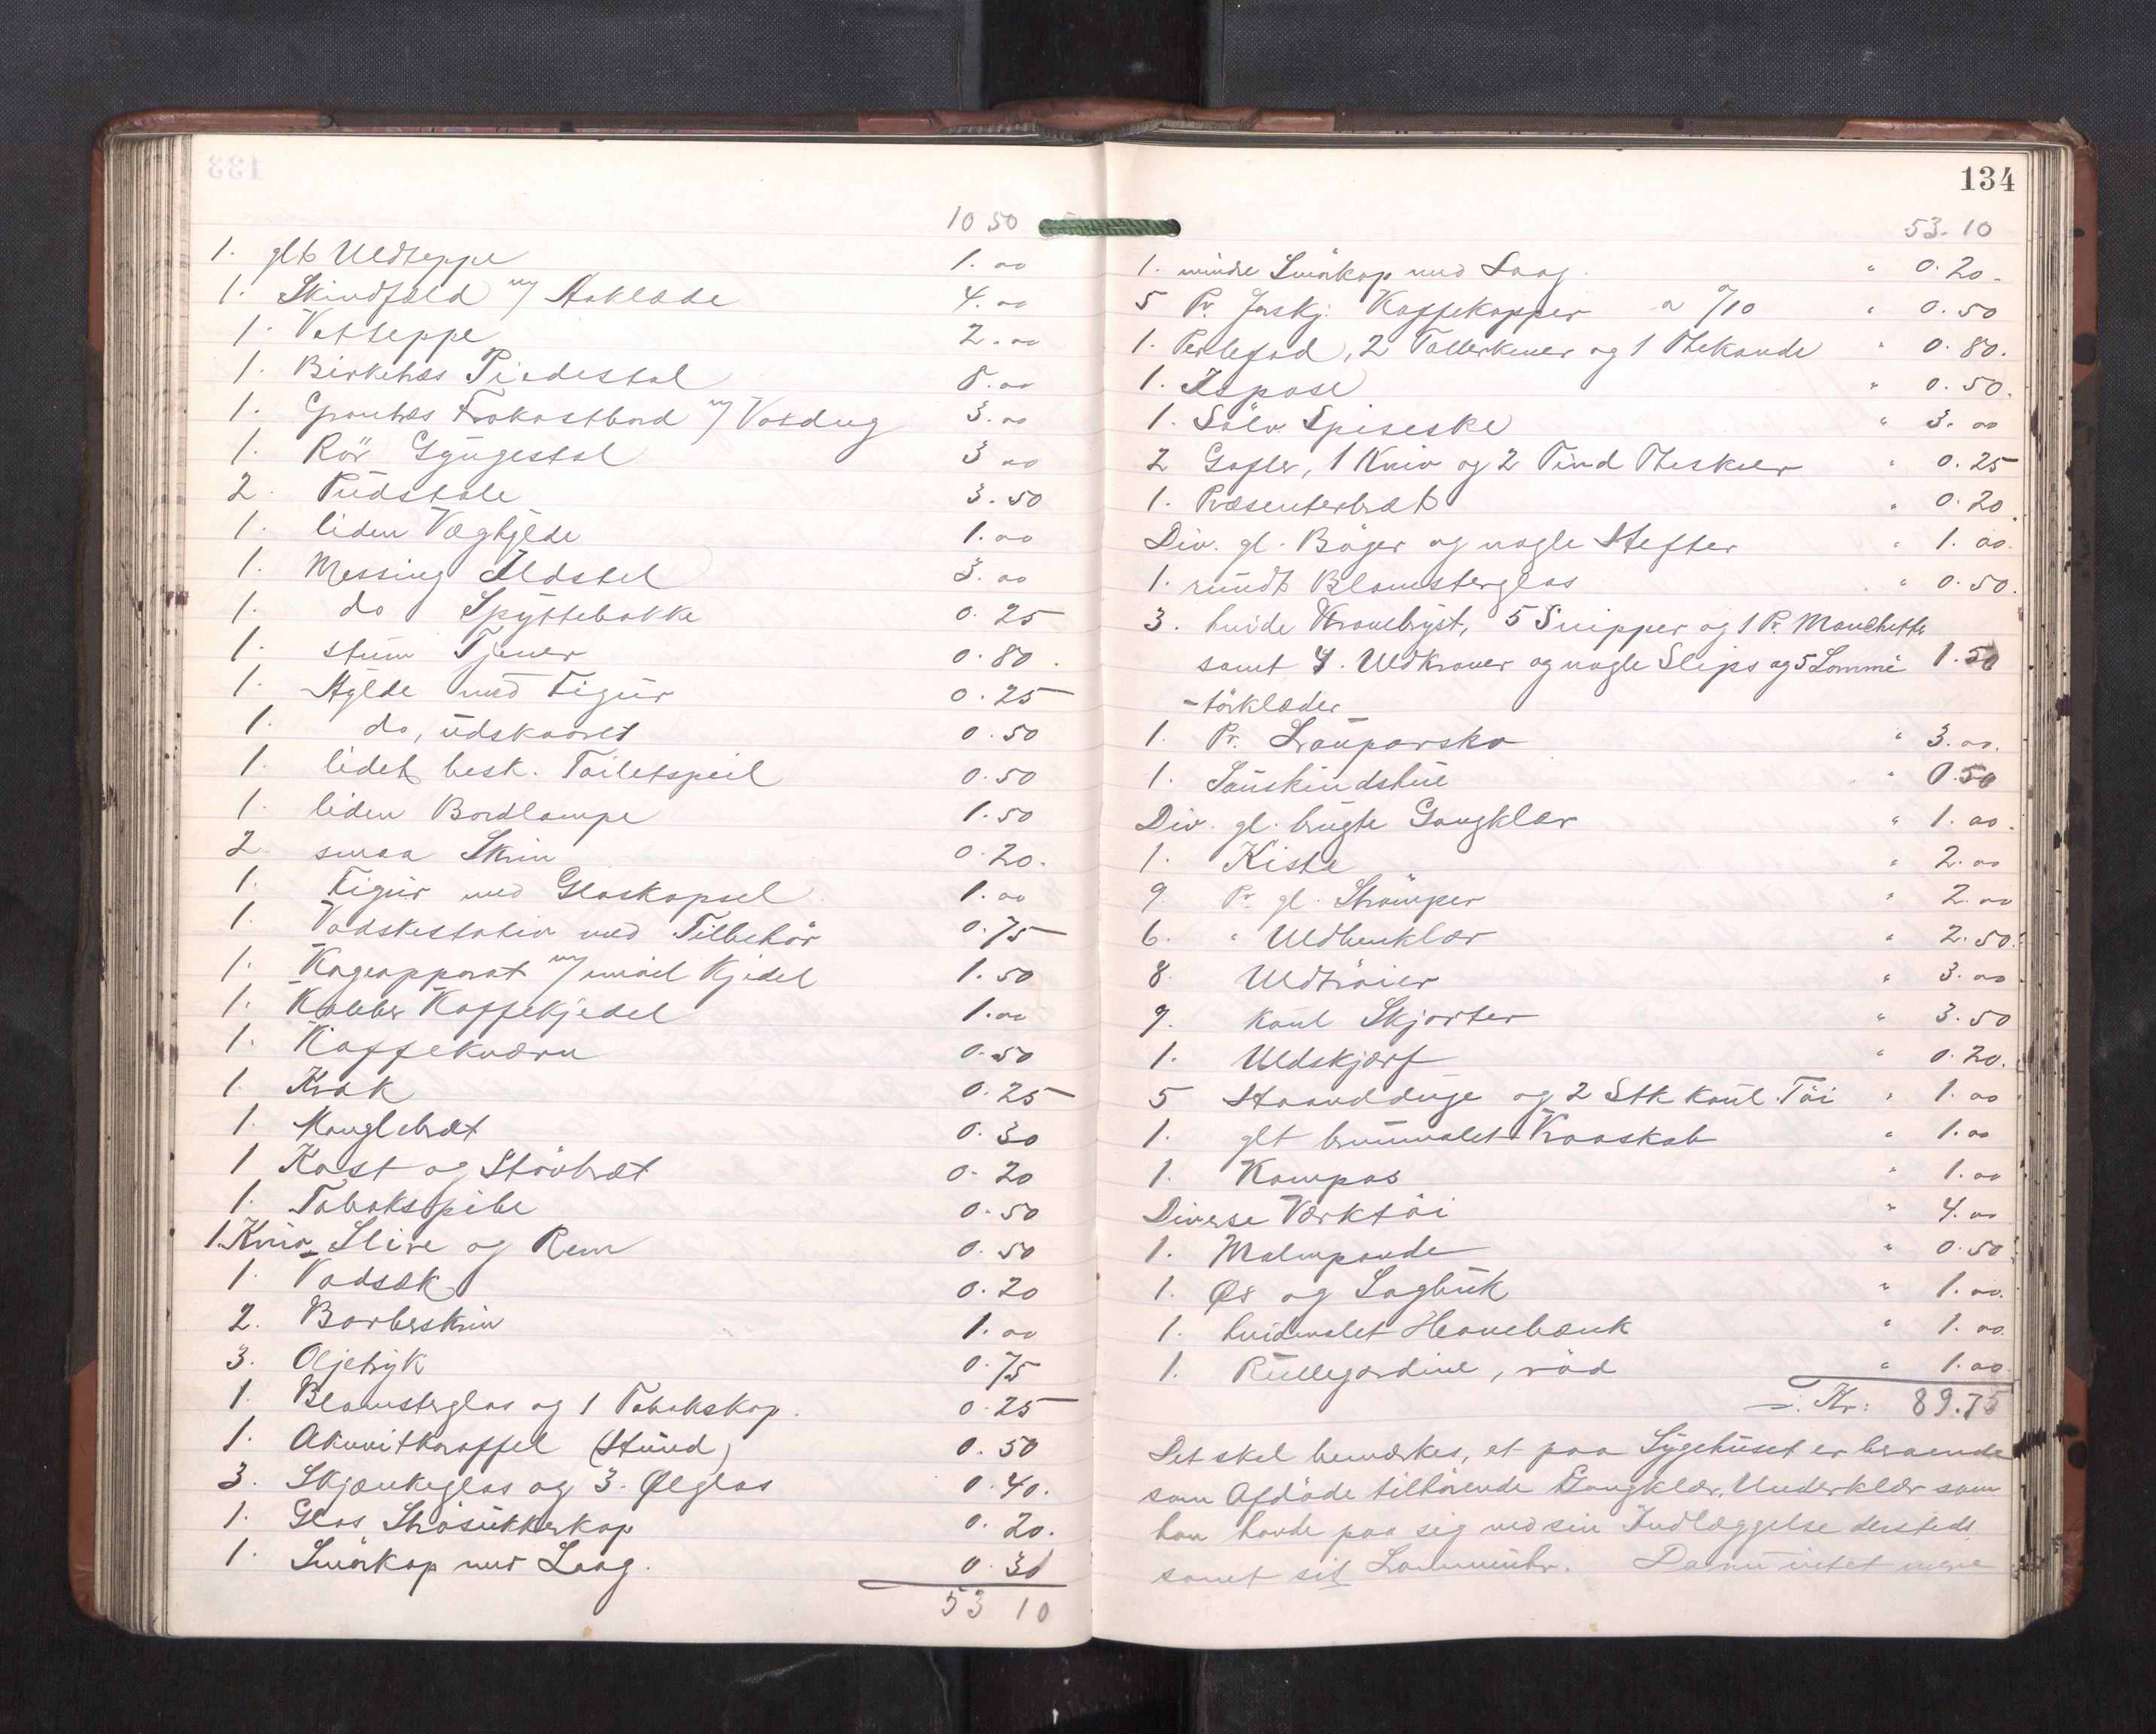 10 50
1. glt Uldteppe 1.00
1. Skindfæld m/ Aaklæde 4.00
1. Vatteppe 2.00
1. Birketræs Piedestal 5.00
1. Grantræs Frokostbord m/ Voxdug 3.00
1. Rör Gyngestol 3 00
2. Pudstole 3.50
1. liden Væghylde 1.00
1. Messing Ildstel 3.00
1. do Spyttebakke 0.25
1. stum Tjener 0.80.
1. Hylde med Figur 0.25
1. do, udskaaret 0.50
1. lidet besk. Toiletspeil 0.50
1. liden Bordlampe 1.50
2. smaa Skrin 0.20.
1. Figur med Glaskapsel 1.00
1. Vadskestativ med Tilbehör 0.75
1. Kogeapparat m/ emäil Kjedel 1.50
1. Kobber Kaffekjedel 1.00
1. Kaffekværn 0.50
1 Krak 0.25
1. Manglebræt 0.30
1 Kost og Stövbræt 0.20
1. Tobakspibe 0.50
1. Kniv, Slire og Rem 0.50
1. Vadsæk 0.20
2. Barberskrin 1.00
3. Oljetryk 0.75
1. Blomsterglas og 1 Tobakskop. 0.25
1. Akvavitkaraffel (Hund) 0.50
3. Skjænkeglas og 3. Ølglas 0.40.
1. Glas Strösukkerkop 0.20.
1. Smörkop med Laag. 0.30
53 10
134
53.10
1. mindre Smörkop med Laag. " 0.20.
5 Pr. forskj. Kaffekopper a º/10 " 0.50
1. Perlefad, 2 Tallerkener og 1 Thekande " 0.80.
1. Ispose " 0.50.
1. Sölv Spiseske " 3.00
2 Gafler, 1 Kniv og 2 Tind Theskeer " 0.25
1. Præsenterbræt " 0.20.
Div. gl. Böger og nogle Hefter " 1.00.
1. rundt Blomsterglas " 0.50.
3. hvide Kravebryst, 5 Snipper og 1 Pr. Manchetter
samt 4. Uldkraver og nogle Slips og 5 Lomme 1.50
-törklæder
1. Pr. Træuparsko " 3.00.
1. Sauskindshue " 0.50
Div. gl. brugte Gangklær " 1.00.
1. Kiste " 2.00
9. Pr. gl. Strömper " 2.00
6. " Uldbenklær " 2.50.
8 Uldtröier " 3.00
7. Koul Skjorter " 3.50
1. Uldskjærf " 0.20.
5 Haandduge og 2 Stk koul. Töi " 1.00
1. glt brunmalet Kraaskab " 1.00
1. Kompas " 1.00
Diverse Værktöi " 4.00
1. Malmpande " 0.50
1. Øx og Sagbuk " 1.00.
1. hvidmalet Havebænk " 1.00
1. Rullegardine, röd " 1.00
Kr: 89.75
Det skal bemærkes, at paa Sygehuset er beroende
som Afdöde tilhörende Gangklær, Underklær som
han havde paa sig ved sin Indlæggelse dersteds
samt sit Lommeuhr. Da nu intet mere